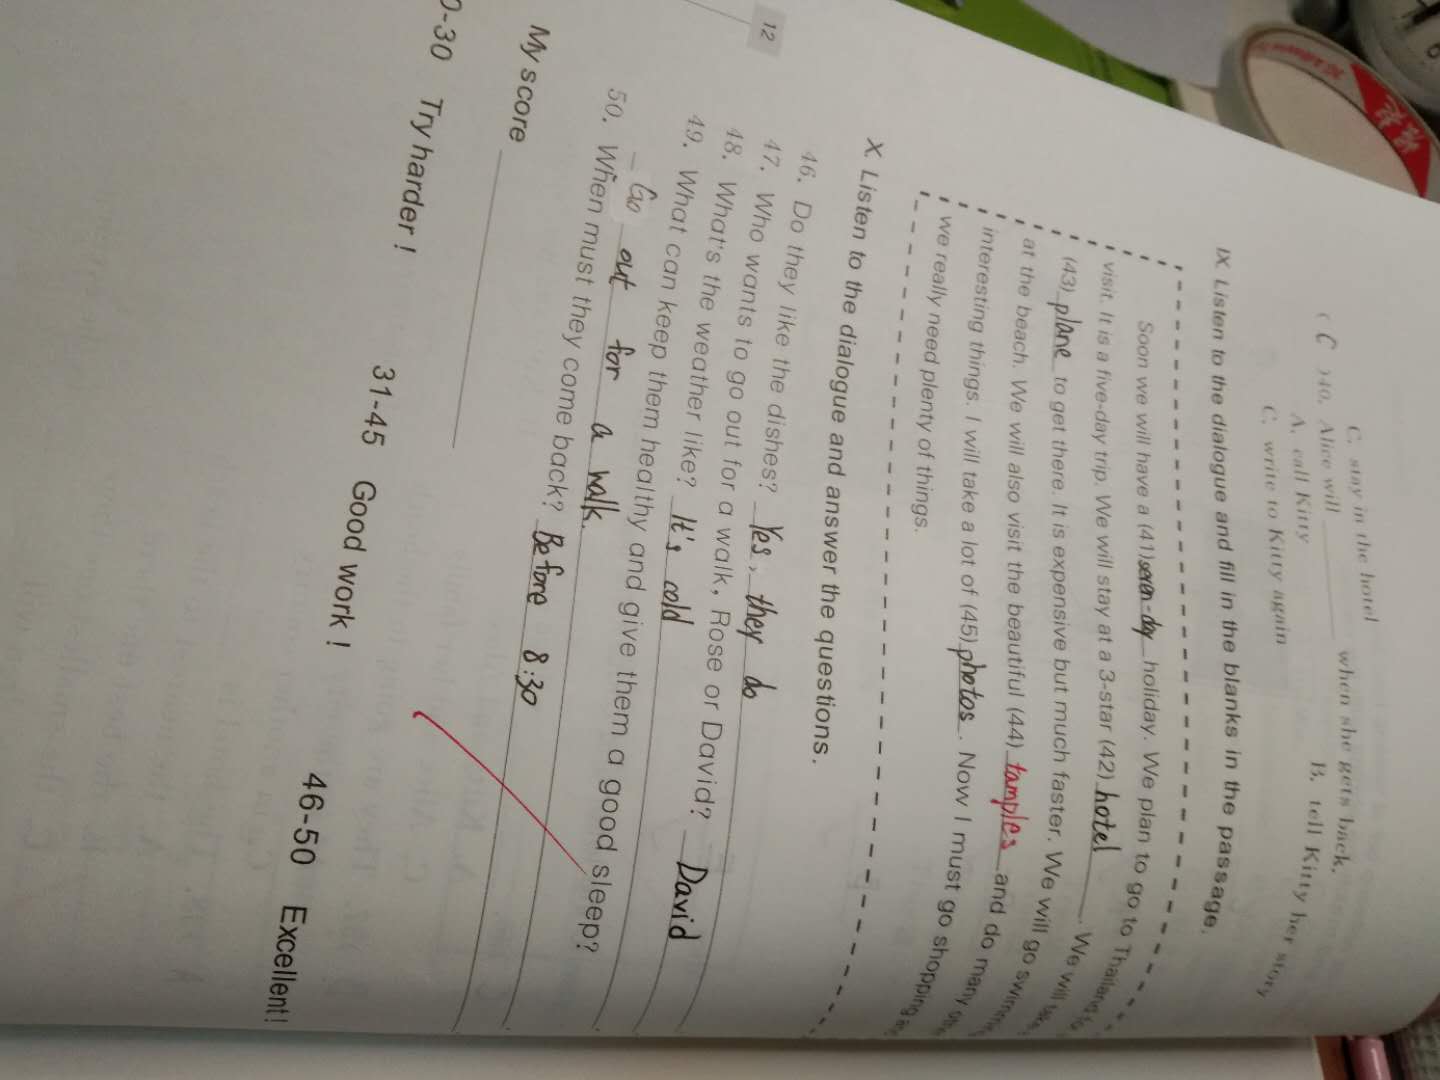 C. stay in the hotel
( C )40. Alice will ______ when she gets back.
A. call Kitty B. tell Kitty her story
C. write to Kitty again
IX. Listen to the dialogue and fill in the blanks in the passage.
Soon we will have a (41) seven-day holiday. We plan to go to Thailand to
visit. It is a five-day trip. We will stay at a 3-star (42) hotel. We will take
(43) plane to get there. It is expensive but much faster. We will go
at the beach. We will also visit the beautiful (44) tamples and do many
interesting things. I will take a lot of (45) photos. Now I must go shopping
we really need plenty of things.
X. Listen to the dialogue and answer the questions.
46. Do they like the dishes? Yes, they do
47. Who wants to go out for a walk, Rose or David? David
48. What's the weather like? It's cold
49. What can keep them healthy and give them a good sleep?
Go out for a walk.
50. When must they come back? Before 8:30
My score
0-30 Try harder! 31-45 Good work! 46-50 Excellent!
12